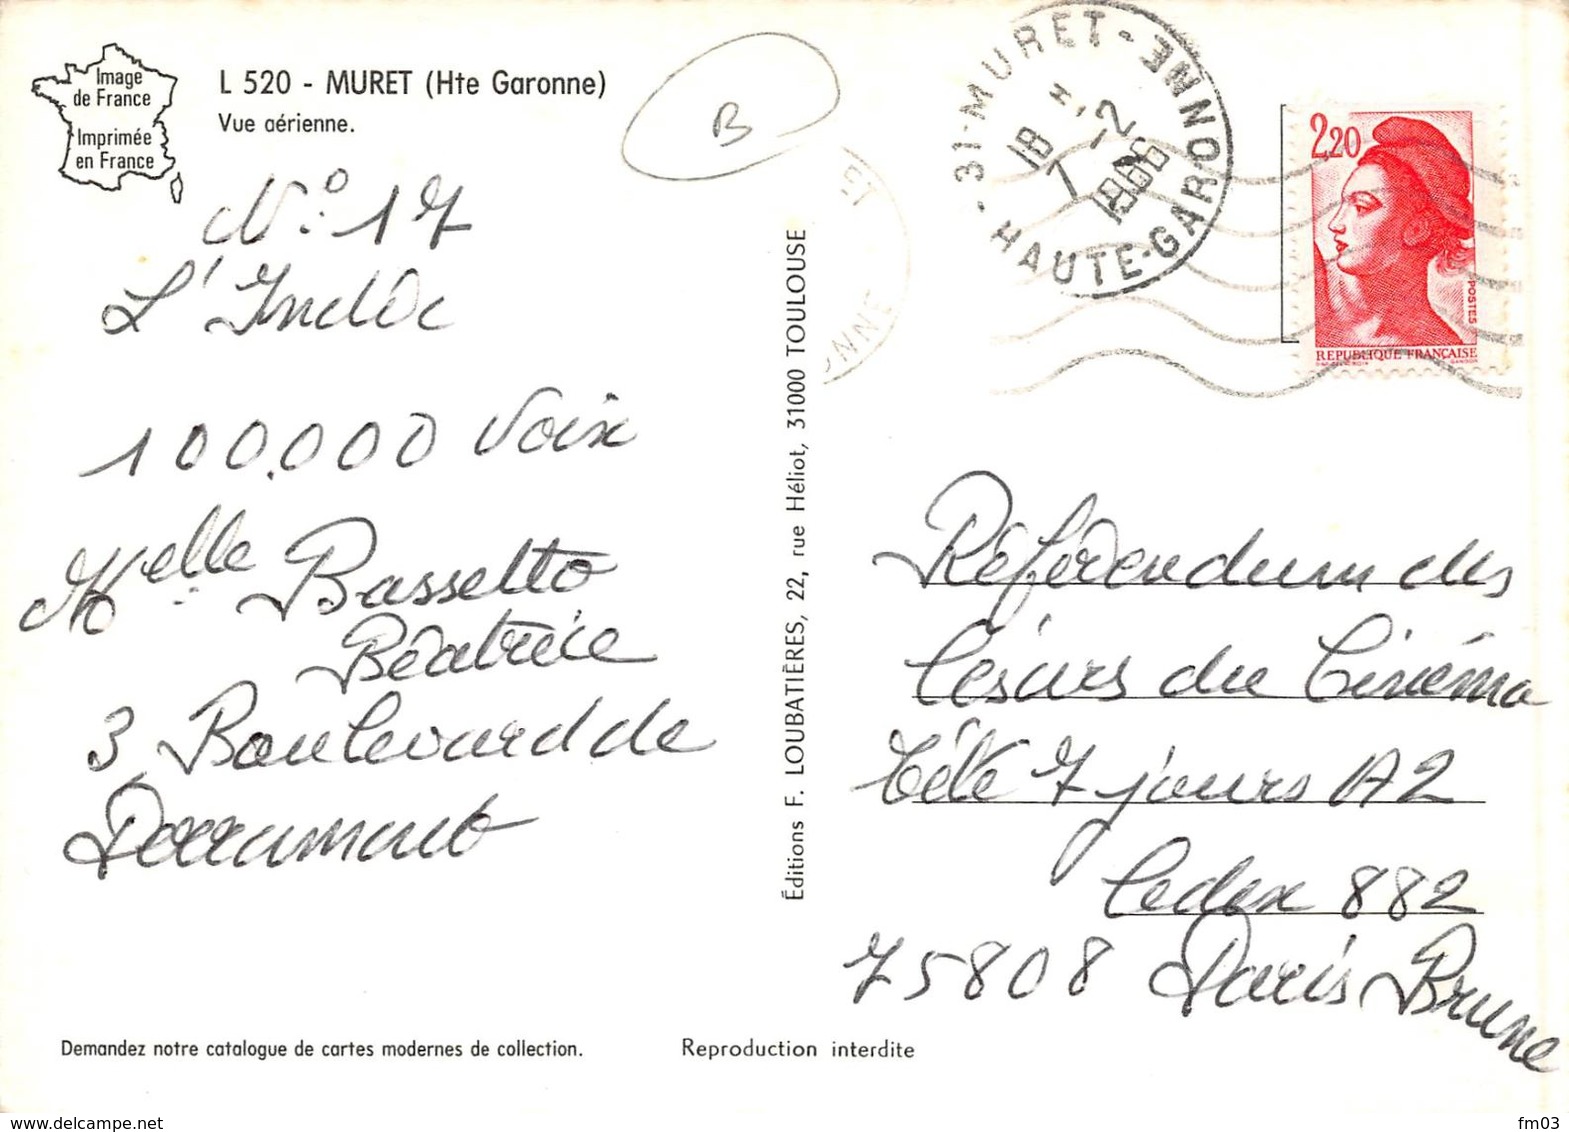 Image
de France
Imprimée
en France
L 520 - MURET (Hte Garonne)
Vue aérienne.
B
N° 17
L'Indic
100.000 Voix
Melle Bassetto
Béatrice
3 Boulevard de
Éditions F. LOUBATIÈRES, 22, rue Héliot, 31000 TOULOUSE
31-MURET-
HAUTE-GARONNE
18 H
7 -2
1986
ET
ONNE
2,20
POSTES
REPUBLIQUE FRANÇAISE
GANDON
Référendum des
Césars du Cinéma
Télé 7 jours A2
Cedex 882
75808 Paris Brune
Demandez notre catalogue de cartes modernes de collection.
Reproduction interdite
www.delcampe.net
fm03